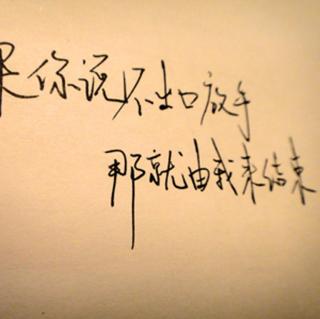 果你说不出口放手
那就由我来结束